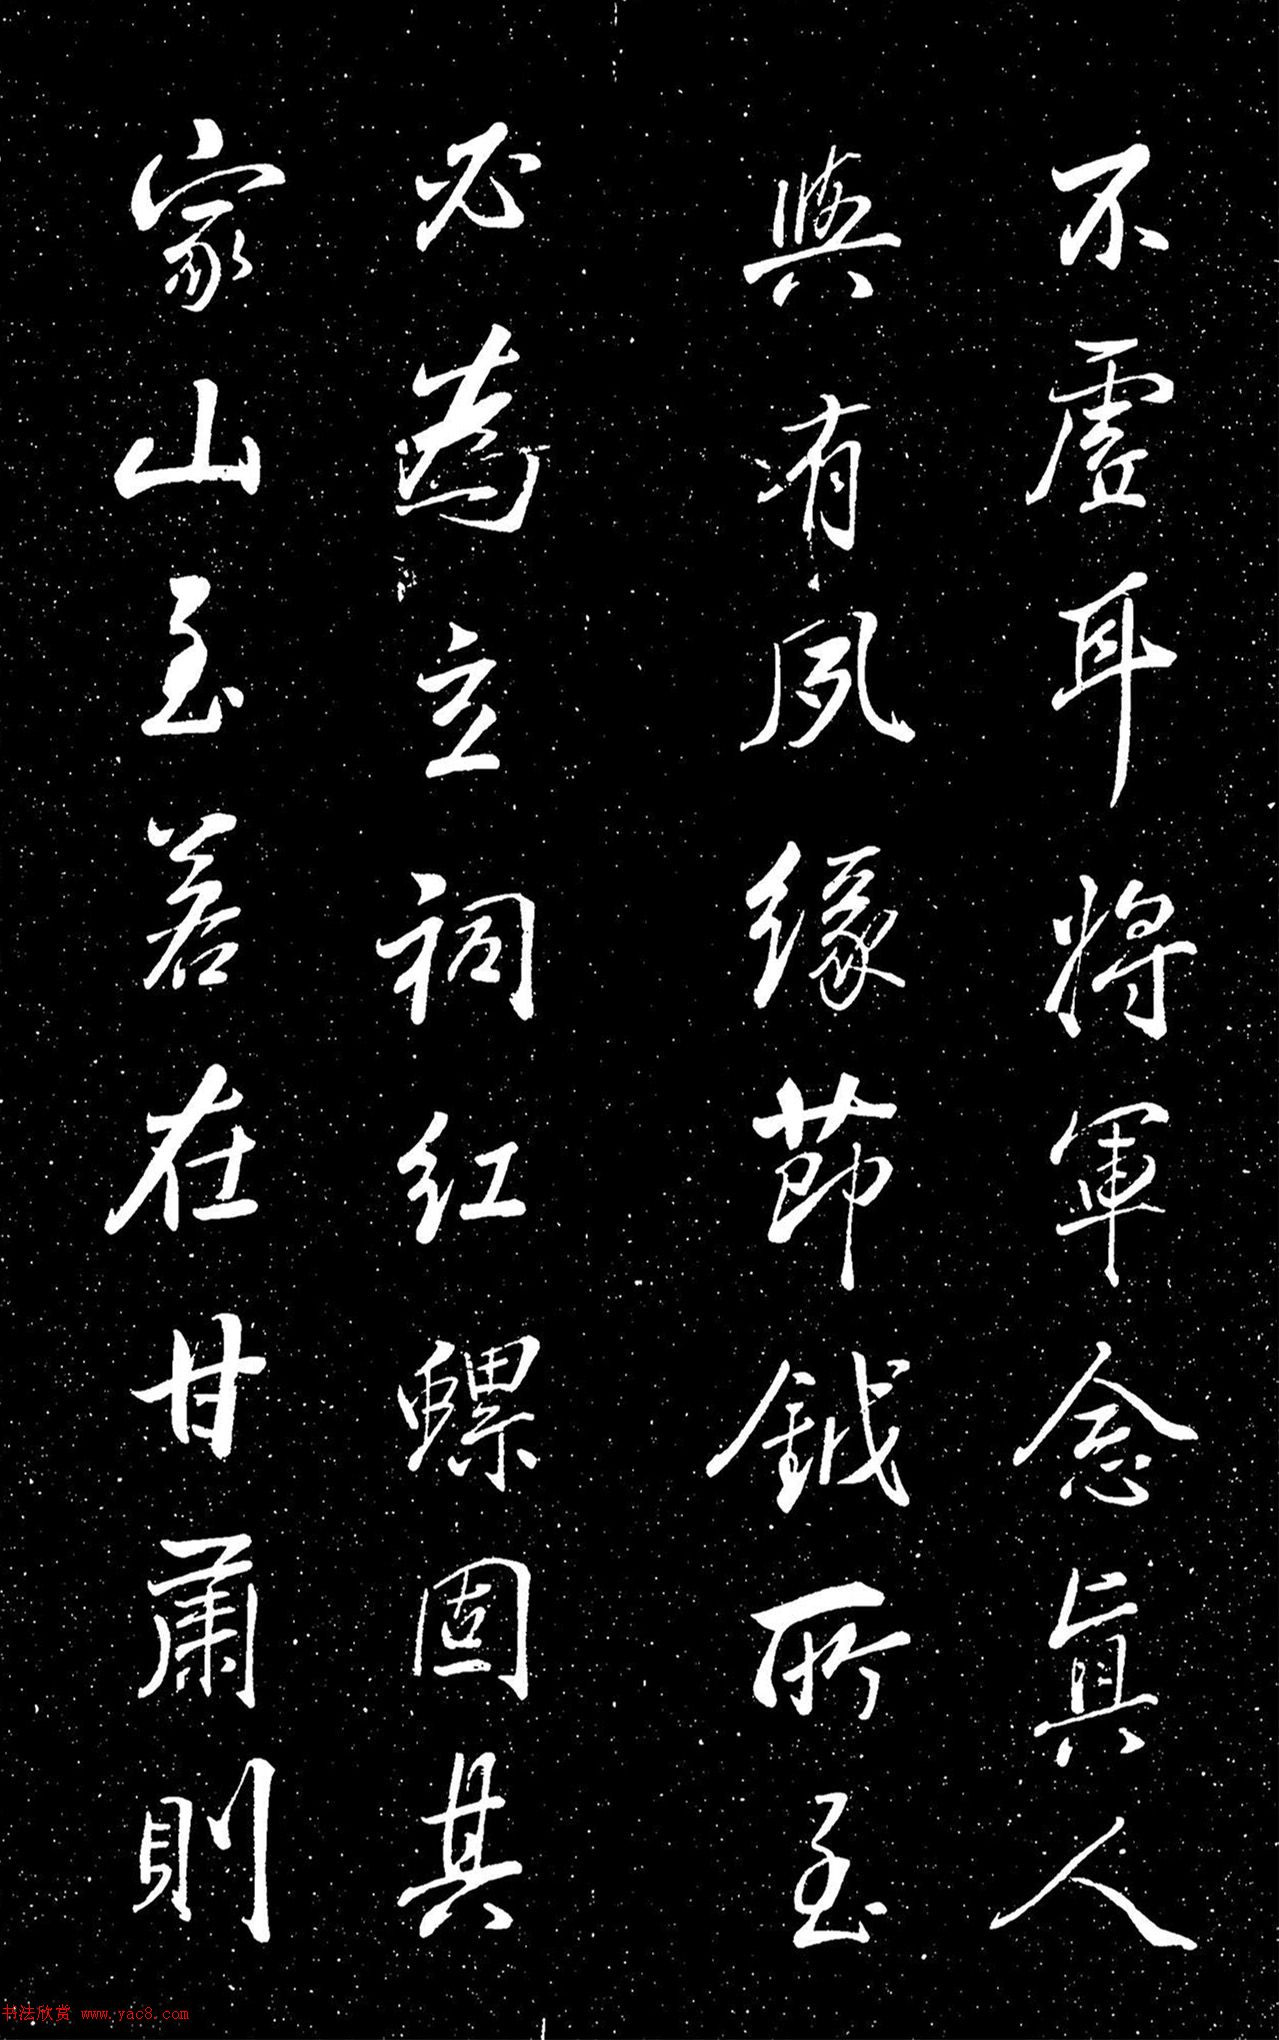 不虛耳將軍念眞人
與有夙緣節鉞所至
必為立祠紅螺固其
家山至若在甘肅則
书法欣赏 www.yac8.com